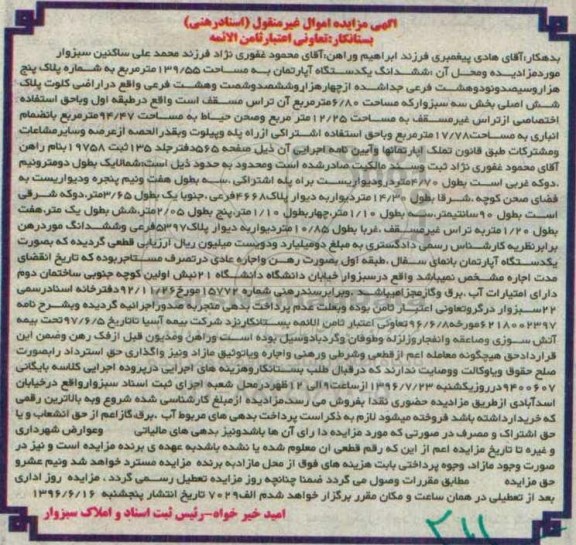 آگهی مزایده اموال غیرمنقول (اسنادرهنی)
بستانکار:تعاونی اعتبارثامن الائمه
بدهکار:آقای هادی پیغمبری فرزند ابراهیم وراهن:آقای محمود غفوری نژاد فرزند محمد علی ساکنین سبزوار
موردمزایده ومحل آن :ششدانگ یکدستگاه آپارتمان به مساحت ۱۳۹/۵۵مترمربع به شماره پلاک پنج
هزاروسیصدونودوهشت فرعی جداشده ازچهارهزاروششصدوشصت وهشت فرعی واقع دراراضی کلوت پلاک
شش اصلی بخش سه سبزوارکه مساحت ۶/۸۰مترمربع آن تراس مسقف است واقع درطبقه اول وباحق استفاده
اختصاصی ازتراس غیرمسقف به مساحت ۱۲/۲۵متر مربع وصحن حیاط به مساحت ۹۴/۴۷مترمربع بانضمام
انباری به مساحت۱۷/۷۸مترمربع وباحق استفاده اشتراکی ازراه پله وپیلوت وبقدرالحصه ازعرصه وسایرمشاعات
ومشترکات طبق قانون تملک آپارتمانها وآیین نامه اجرایی آن ذیل صفحه ۵۶۵دفترجلد ۱۳۵ثبت ۱۹۷۵۸بنام راهن
آقای محمود غفوری نژاد ثبت وسند مالکیت صادرشده است ومحدود به حدود ذیل است:شمالایک بطول دومترونیم
،دوکه غربی است بطول ۴/۷۰متردرودیواریست براه پله اشتراکی ،سه بطول هفت ونیم پنجره ودیواریست به
فضای صحن کوچه ،شرقا بطول ۱۴/۳۰متردیواربه دیوار پلاک۴۶۶۸فرعی ،جنوبا یک بطول ۳/۶۵متر،دوکه شرقی
است بطول ۹۰سانتیمتر،سه بطول ۱/۱۰متر،چهاربطول ۱/۱۰متر،پنج بطول ۲/۰۵متر،شش بطول یک متر،هفت
بطول ۱/۲۰متربه تراس غیرمسقف ،غربا بطول ۱۰/۸۵متردیواربه دیوار پلاک۵۳۹۷فرعی وششدانگ موردرهن
برابرنظریه کارشناس رسمی دادگستری به مبلغ دومیلیارد ودویست میلیون ریال ارزیابی قطعی گردیده که بصورت
یکدستگاه آپارتمان بانمای سفال ،طبقه اول بصورت رهن واجاره عادی درتصرف مستاجربوده که تاریخ انقضای
مدت اجاره مشخص نمیباشد واقع درسبزوار خیابان دانشگاه دانشگاه ۲۱نبش اولین کوچه جنوبی ساختمان دوم
دارای امتیازات آب ،برق وگازمجزامیباشد.وبرابرسندرهنی شماره ۱۵۷۷۲مورخ۹۲/۱۱/۲۶دفترخانه اسنادرسمی
۲۲سبزوار درگروتعاونی اعتبار ثامن بوده وبعلت عدم پرداخت بدهی منجربه صدوراجرائیه گردیده وبشرح نامه
۶۲۱۸۰۰۲۳۹۷مورخه۹۶/۶/۸تعاونی اعتبار ثامن الائمه بستانکارنزد شرکت بیمه آسیا تاتاریخ ۹۷/۶/۵تحت بیمه
آتش سوزی وصاعقه وانفجاروزلزله وطوفان وگردبادوسیل بوده است وراهن ومدیون قبل ازفک رهن وضمن این
قراردادحق هیچگونه معامله اعم ازقطعی وشرطی ورهنی واجاره وباتوثیق مازاد ونیز واگذاری حق استرداد رابصورت
صلح حقوق ویاوکالت ووصایت ندارند که درقبال طلب بستانکاروهزینه های اجرایی درپرونده اجرایی کلاسه بایگانی
۹۴۰۰۶۰۷درروزیکشنبه ۱۳۹۶/۷/۲۳ازساعت۹الی ۱۲ظهردرمحل شعبه اجرای ثبت اسناد سبزوارواقع درخیابان
اسدآبادی ازطریق مزایده حضوری نقدا بفروش می رسد.مزایده ازمبلغ کارشناسی شده شروع وبه بالاترین رقمی
که خریدارداشته باشد فروخته میشود لازم به ذکراست پرداخت بدهی های مربوط آب ،برق،گازاعم از حق انشعاب و یا
حق اشتراک و مصرف در صورتی که مورد مزایده دا رای آن ها باشدونیز بدهی های مالیاتی وعوارض شهرداری
و غیره تا تاریخ مزایده اعم از این که رقم قطعی ان معلوم شده یا نشده باشدبه عهده ی برنده مزایده است و نیز در
صورت وجود مازاد، وجوه پرداختی بابت هزینه های فوق از محل مازادبه برنده مزایده مسترد خواهد شد ونیم عشرو
حق مزایده مطابق مقررات وصول می گردد ضمنا چنانچه روز مزایده تعطیل رسمی گردد ، مزایده روز اداری
بعد از تعطیلی در همان ساعت و مکان مقرر برگزار خواهد شدم الف۷۰۲۹ تاریخ انتشار پنجشنبه ۱۳۹۶/۶/۱۶
امید خیر خواه-رئیس ثبت اسناد و املاک سبزوار